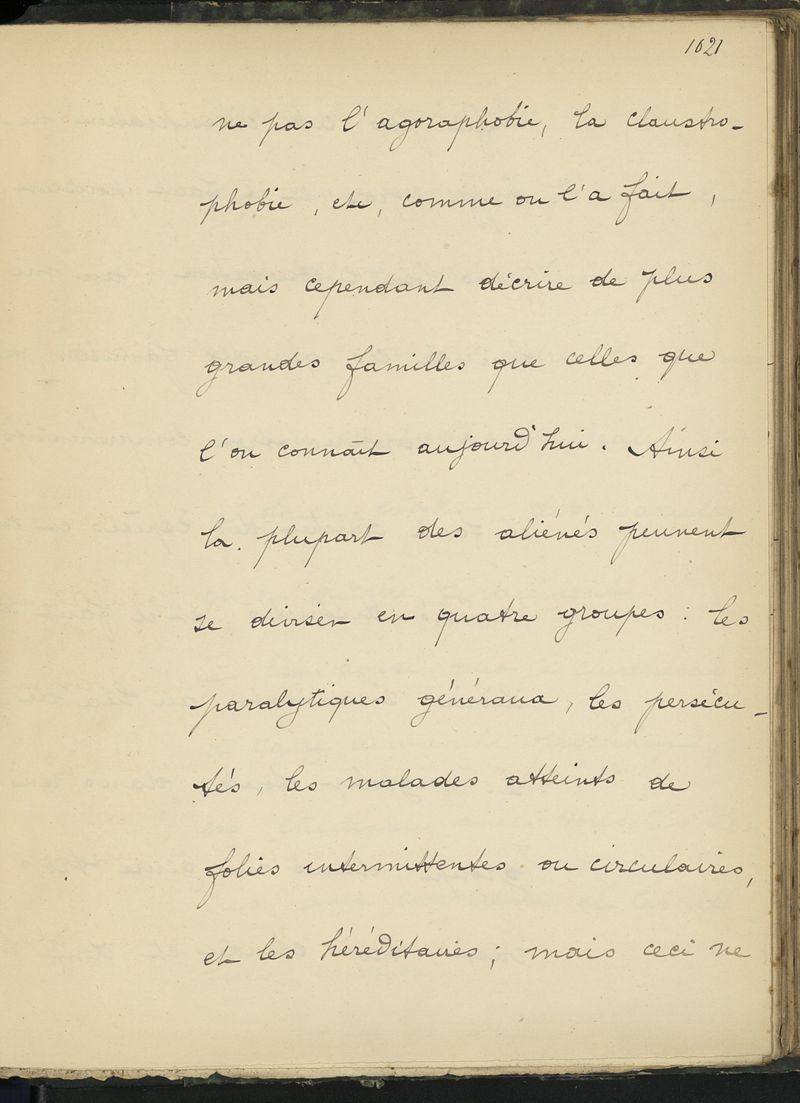 1621
ne pas l'agoraphobie, la claustro-
phobie, etc, comme on l'a fait,
mais cependant décrire de plus
grandes familles que celles que
l'on connaît aujourd'hui. Ainsi
la plupart des aliénés peuvent
se diviser en quatre groupes : les
paralytiques généraux, les persécu-
tés, les malades atteints de
folies intermittentes ou circulaires,
et les héréditaires ; mais ceci ne